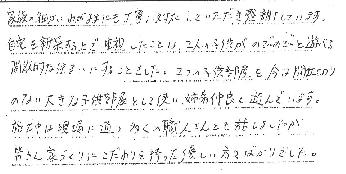 家族の細かいわがままにも丁寧に対応していただき感謝しています。
自宅を新築する上で重視したことは、2人の子供がのびのびと遊べる
開放的な住まいにすることでした。2つの子供部屋を今は間仕切りの
ない大きな子供部屋として使い、姉弟仲良く遊んでいます。
施工中は現場に通い多くの職人さんとお話しましたが
皆さん家づくりにこだわりを持った優しい方ばかりでした。